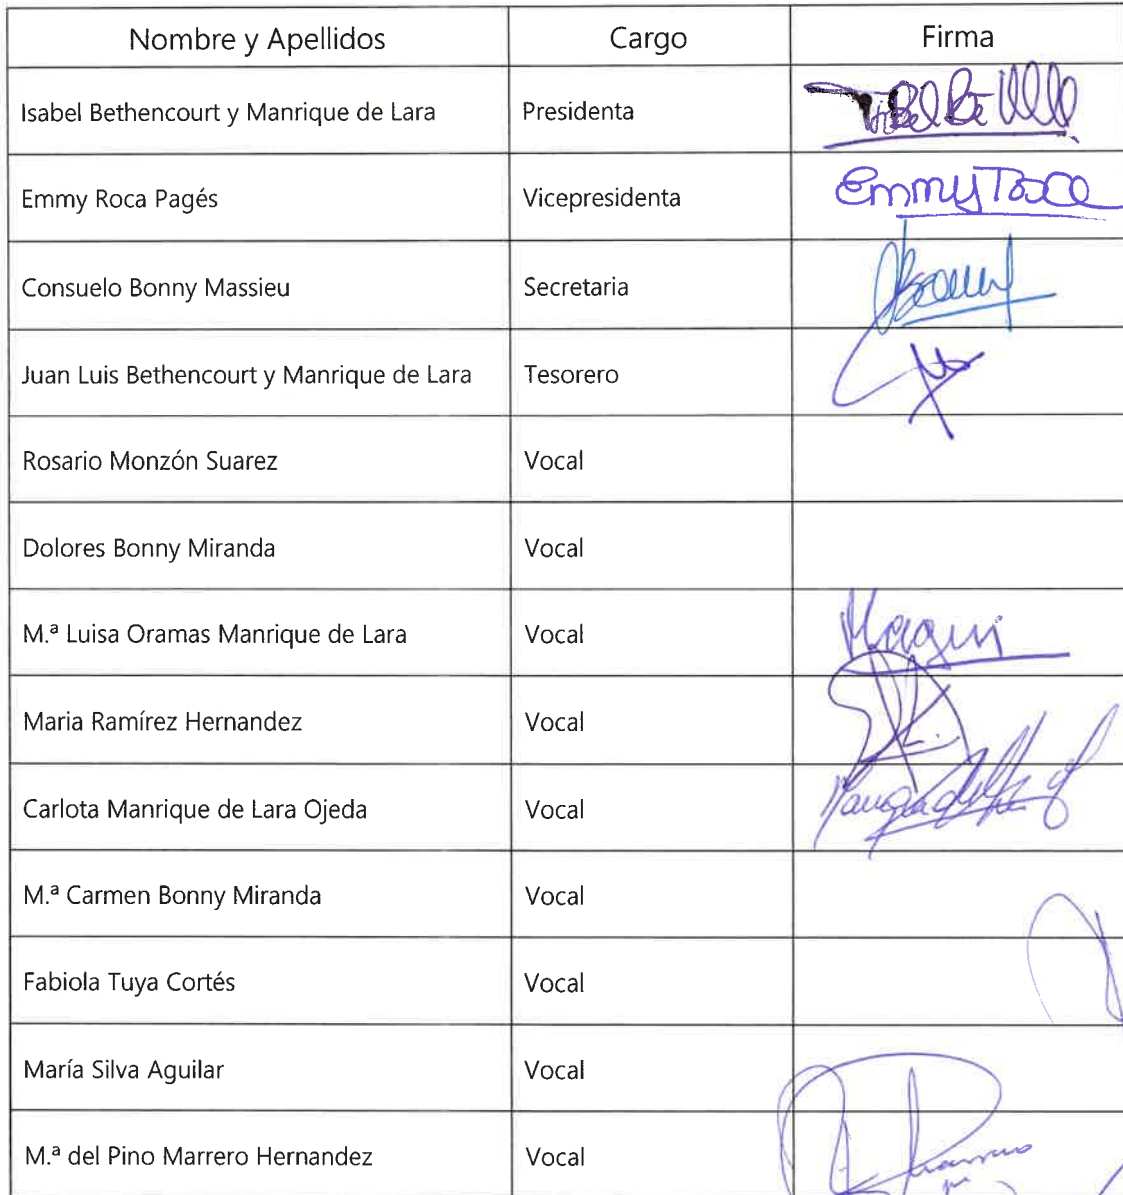 Nombre y Apellidos Cargo Firma
Isabel Bethencourt y Manrique de Lara Presidenta
Emmy Roca Pagés Vicepresidenta Emmy Roca
Consuelo Bonny Massieu Secretaria
Juan Luis Bethencourt y Manrique de Lara Tesorero
Rosario Monzón Suarez Vocal
Dolores Bonny Miranda Vocal
M.ª Luisa Oramas Manrique de Lara Vocal
Maria Ramírez Hernandez Vocal
Carlota Manrique de Lara Ojeda Vocal
M.ª Carmen Bonny Miranda Vocal
Fabiola Tuya Cortés Vocal
María Silva Aguilar Vocal
M.ª del Pino Marrero Hernandez Vocal